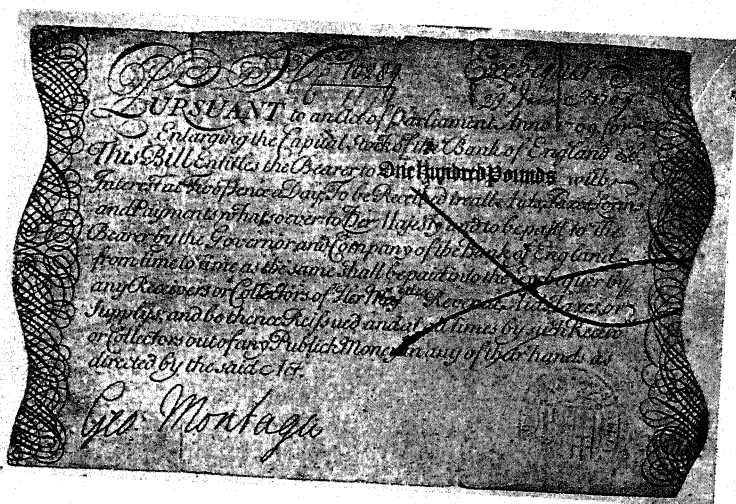 No 10289 Exchequer
29 June 1709
PURSUANT to an Act of Parliament Anno 1709. for
Enlarging the Capital Stock of the Bank of England &c
This Bill Entitles the Bearer to One Hundred Pounds with
Interest at Two Pence a Day, To be Received in all Aids, Taxes Loans
and Payments whatsoever to Her Majesty and to be paid to the
Bearer by the Governor and Company of the Bank of England
from time to time as the same shall be paid into the Exchequer by
any Receivers or Collectors of Her Matys Revenue, Aids, Taxes, or
Supplys, and be thence Reissued and at all times by such Receivrs
or Collectors out of any Publick Money in any of their hands as
directed by the said Act.
Geo: Montagu